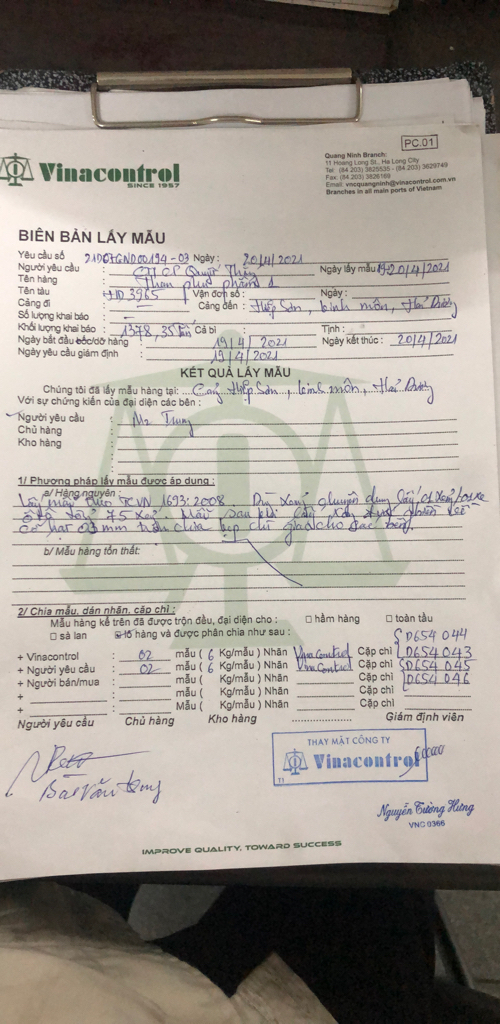 PC.01
Vinacontrol
SINCE 1957
Quang Ninh Branch:
11 Hoang Long St., Ha Long City
Tel: (84 203) 3825535 - (84 203) 3829749
Fax: (84 203) 3826169
Email: vncquangninh@vinacontrol.com.vn
Branches in all main ports of Vietnam
BIÊN BẢN LẤY MẪU
Yêu cầu số 21D07GND00194-03 Ngày: 20/4/2021
Người yêu cầu : CTCP Quyết Thắng Ngày lấy mẫu: 19-20/4/2021
Tên hàng : Than phụ phẩm 1
Tên tàu : HD 3965 Vận đơn số: Ngày:
Cảng đi : Cảng đến : Hiệp Sơn, Kinh Môn, Hải Dương
Số lượng khai báo : –
Khối lượng khai báo : 1378,35 tấn Cả bì : Tịnh :
Ngày bắt đầu bốc/dỡ hàng : 19/4/2021 Ngày kết thúc : 20/4/2021
Ngày yêu cầu giám định : 19/4/2021
KẾT QUẢ LẤY MẪU
Chúng tôi đã lấy mẫu hàng tại: Cảng Hiệp Sơn, Kinh Môn, Hải Dương
Với sự chứng kiến của đại diện các bên :
Người yêu cầu : Mr Trung
Chủ hàng :
Kho hàng :
1/ Phương pháp lấy mẫu được áp dụng :
a/ Hàng nguyên :
Lấy mẫu theo TCVN 1693:2008. Dùng xẻng chuyên dụng lấy 01 xẻng/01 xe
ô tô 75 xe. Mẫu sau khi lấy
cỡ hạt 03 mm trộn chia kẹp chì giao cho các bên.
b/ Mẫu hàng tổn thất:
2/ Chia mẫu, dán nhãn, cặp chì :
Mẫu hàng kể trên đã được trộn đều, đại diện cho : □ hầm hàng □ toàn tàu
□ sà lan ☑ lô hàng và được phân chia như sau :
D654 044
+ Vinacontrol : 02 mẫu ( 6 Kg/mẫu ) Nhãn Vinacontrol Cặp chì D654 043
+ Người yêu cầu : 02 mẫu ( 6 Kg/mẫu ) Nhãn Vinacontrol Cặp chì D654 045
+ Người bán/mua : mẫu ( Kg/mẫu ) Nhãn Cặp chì D654 046
+ : mẫu ( Kg/mẫu ) Nhãn Cặp chì
+ : Mẫu ( Kg/mẫu ) Nhãn Cặp chì
Người yêu cầu Chủ hàng Kho hàng Giám định viên
THAY MẶT CÔNG TY
Vinacontrol
T1
Bùi Văn Trung
Nguyễn Tường Hưng
VNC 0366
IMPROVE QUALITY, TOWARD SUCCESS